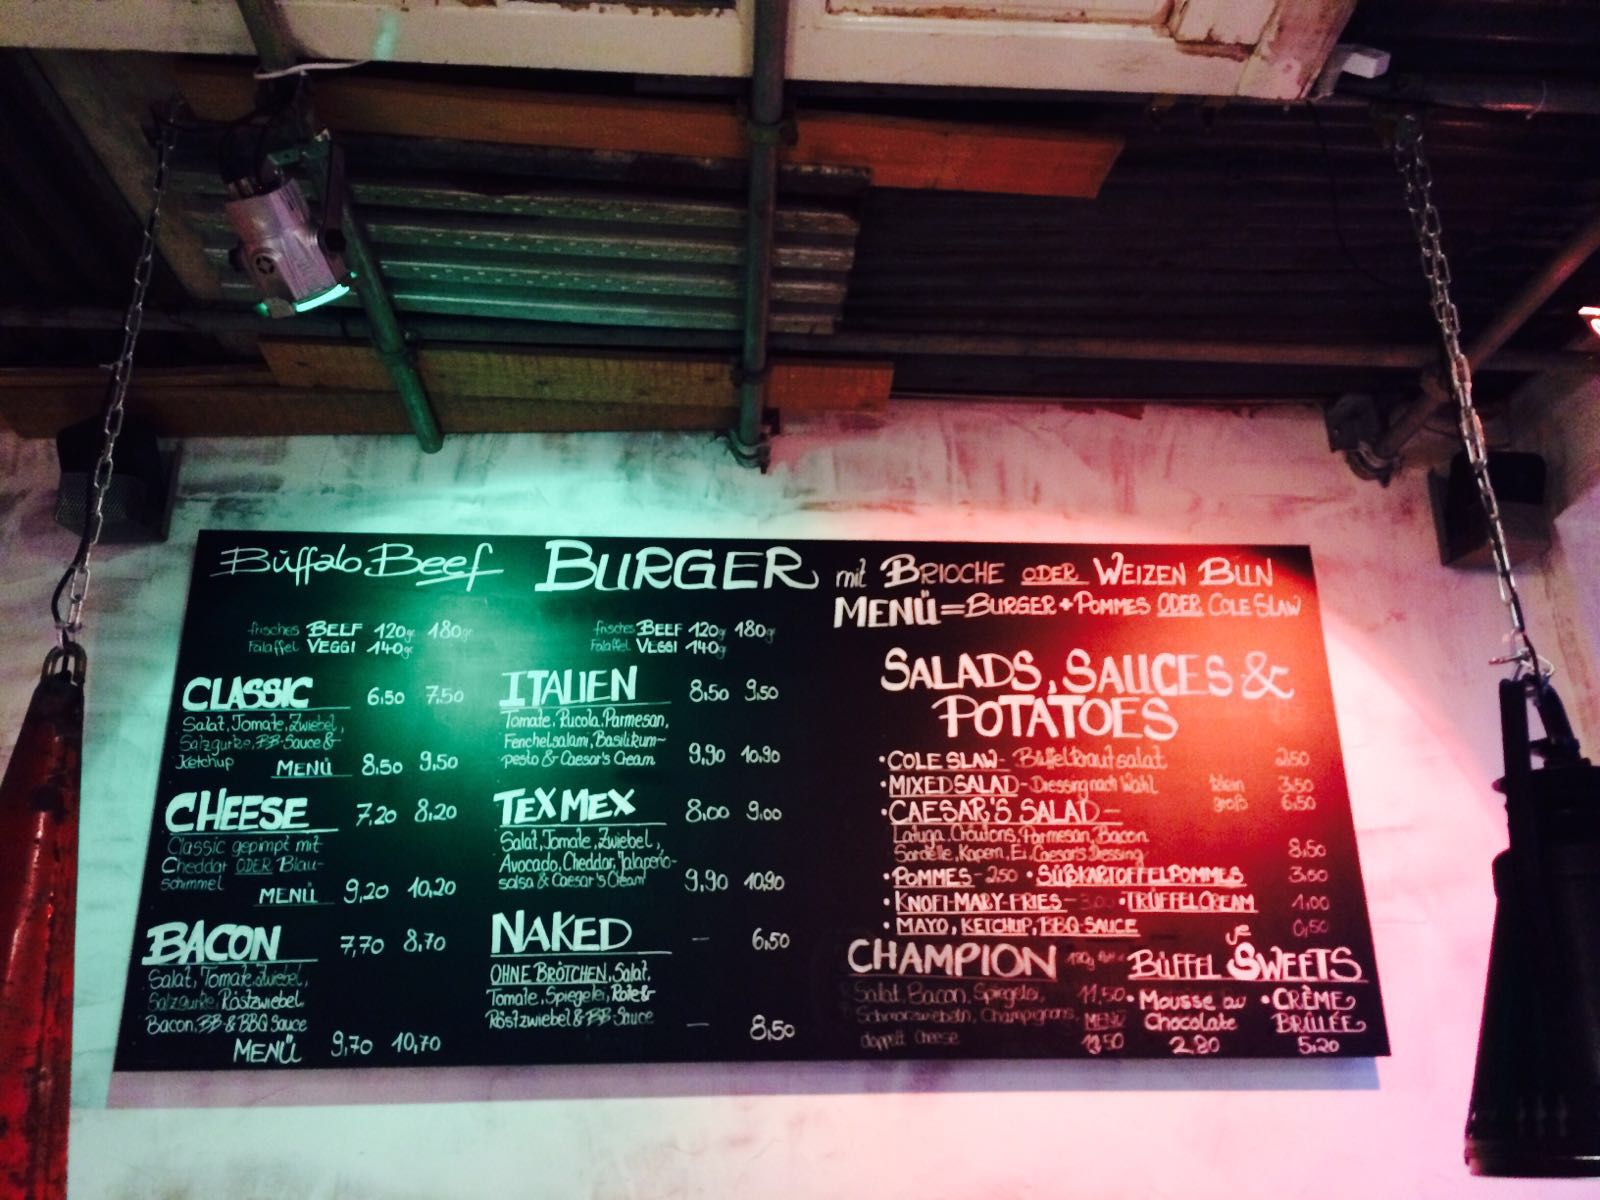 Büffalo Beef BURGER mit BRIOCHE ODER WEIZEN BUN
MENÜ=BURGER+POMMES ODER COLE SLAW
frisches BEEF 120gr 180gr
Falaffel VEGGI 140gr
CLASSIC 6,50 7,50
Salat, Tomate, Zwiebel,
Salzgurke, BB-Sauce &
Ketchup
MENÜ 8,50 9,50
CHEESE 7,20 8,20
Classic gepimpt mit
Cheddar ODER Blau-
schimmel
MENÜ 9,20 10,20
BACON 7,70 8,70
Salat, Tomate, Zwiebel,
Salzgurke, Röstzwiebel
Bacon, BB & BBQ Sauce
MENÜ 9,70 10,70
frisches BEEF 120gr 180gr
Falaffel VEGGI 140gr
ITALIEN 8,50 9,50
Tomate, Rucola, Parmesan,
Fenchelsalami, Basilikum-
pesto & Caesar's Cream 9,90 10,90
TEX MEX 8,00 9,00
Salat, Tomate, Zwiebel,
Avocado, Cheddar, Jalapeño-
salsa & Caesar's Cream 9,90 10,90
NAKED — 6,50
OHNE BRÖTCHEN, Salat,
Tomate, Spiegelei, Rote &
Röstzwiebel & BB-Sauce — 8,50
SALADS, SAUCES &
POTATOES
• COLE SLAW - Büffel Krautsalat 2,50
• MIXED SALAD - Dressing nach Wahl klein 3,50
groß 6,50
• CAESAR'S SALAD -
Latuga, Croutons, Parmesan, Bacon
Sardelle, Kapern, Ei, Caesar's Dessing 8,50
• POMMES - 2,50 • SÜẞKARTOFFELPOMMES 3,50
• KNOFI-MARY-FRIES - 3,00 • TRÜFFELCREAM 1,00
• MAYO, KETCHUP, BBQ SAUCE 0,50
CHAMPION
Salat, Bacon, Spiegelei, 11,50
Schmorzwiebeln, Champignons, MENÜ
doppelt Cheese 13,50
BÜFFEL SWEETS
• Mousse au
Chocolate
2,80
• CRÈME
BRÛLÉE
5,20